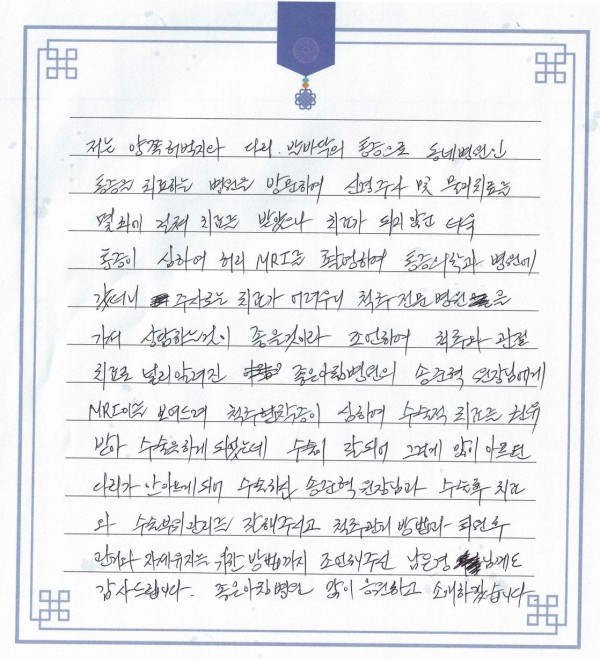 저는 양쪽허벅지와 다리. 발바닥의 통증으로 동네병원인
통증전 치료하는 병원을 방문하여 신경주사 및 물리치료를
몇차례 걸쳐 치료를 받았으나 치료가 되지않고 더욱
통증이 심하여 허리 MRI를 촬영하여 통증의학과 병원에
갔더니 주사로는 치료가 어려우니 척추 전문 병원을
가서 상담하는것이 좋을것이라 조언하여 척추와 관절
치료로 널리알려진 좋은아침병원의 송준혁 원장님에게
MRI를 보여드려 척추협착증이 심하여 수술적 치료를 권유
받아 수술을하게 되었는데 수술이 잘되어 그렇게 많이 아프던
다리가 안아프게되어 수술하신 송준혁 원장님과 수술후 치료
와 수술부위관리를 잘해주시고 척추관리 방법과 퇴원후
관리와 자세유지를 위한 방법까지 조언해주신 남은경 님께도
감사드립니다. 좋은아침병원 많이 응원하고 소개하겠습니다.